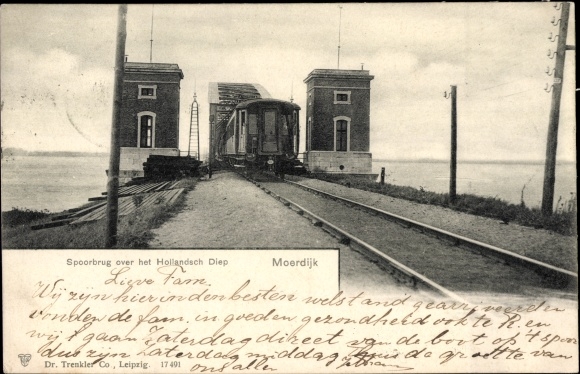 Spoorbrug over het Hollandsch Diep Moerdijk
Lieve Fam.
Wij zijn hier in den besten welstand gearriveerden
vonden de fam. in goeden gezondheid ook te R. en
wij gaan Zaterdag direct van de boot op 't spoor
dus zijn Zaterdag middag thuis de groette van
ons allen
Dr. Trenkler Co., Leipzig. 17491